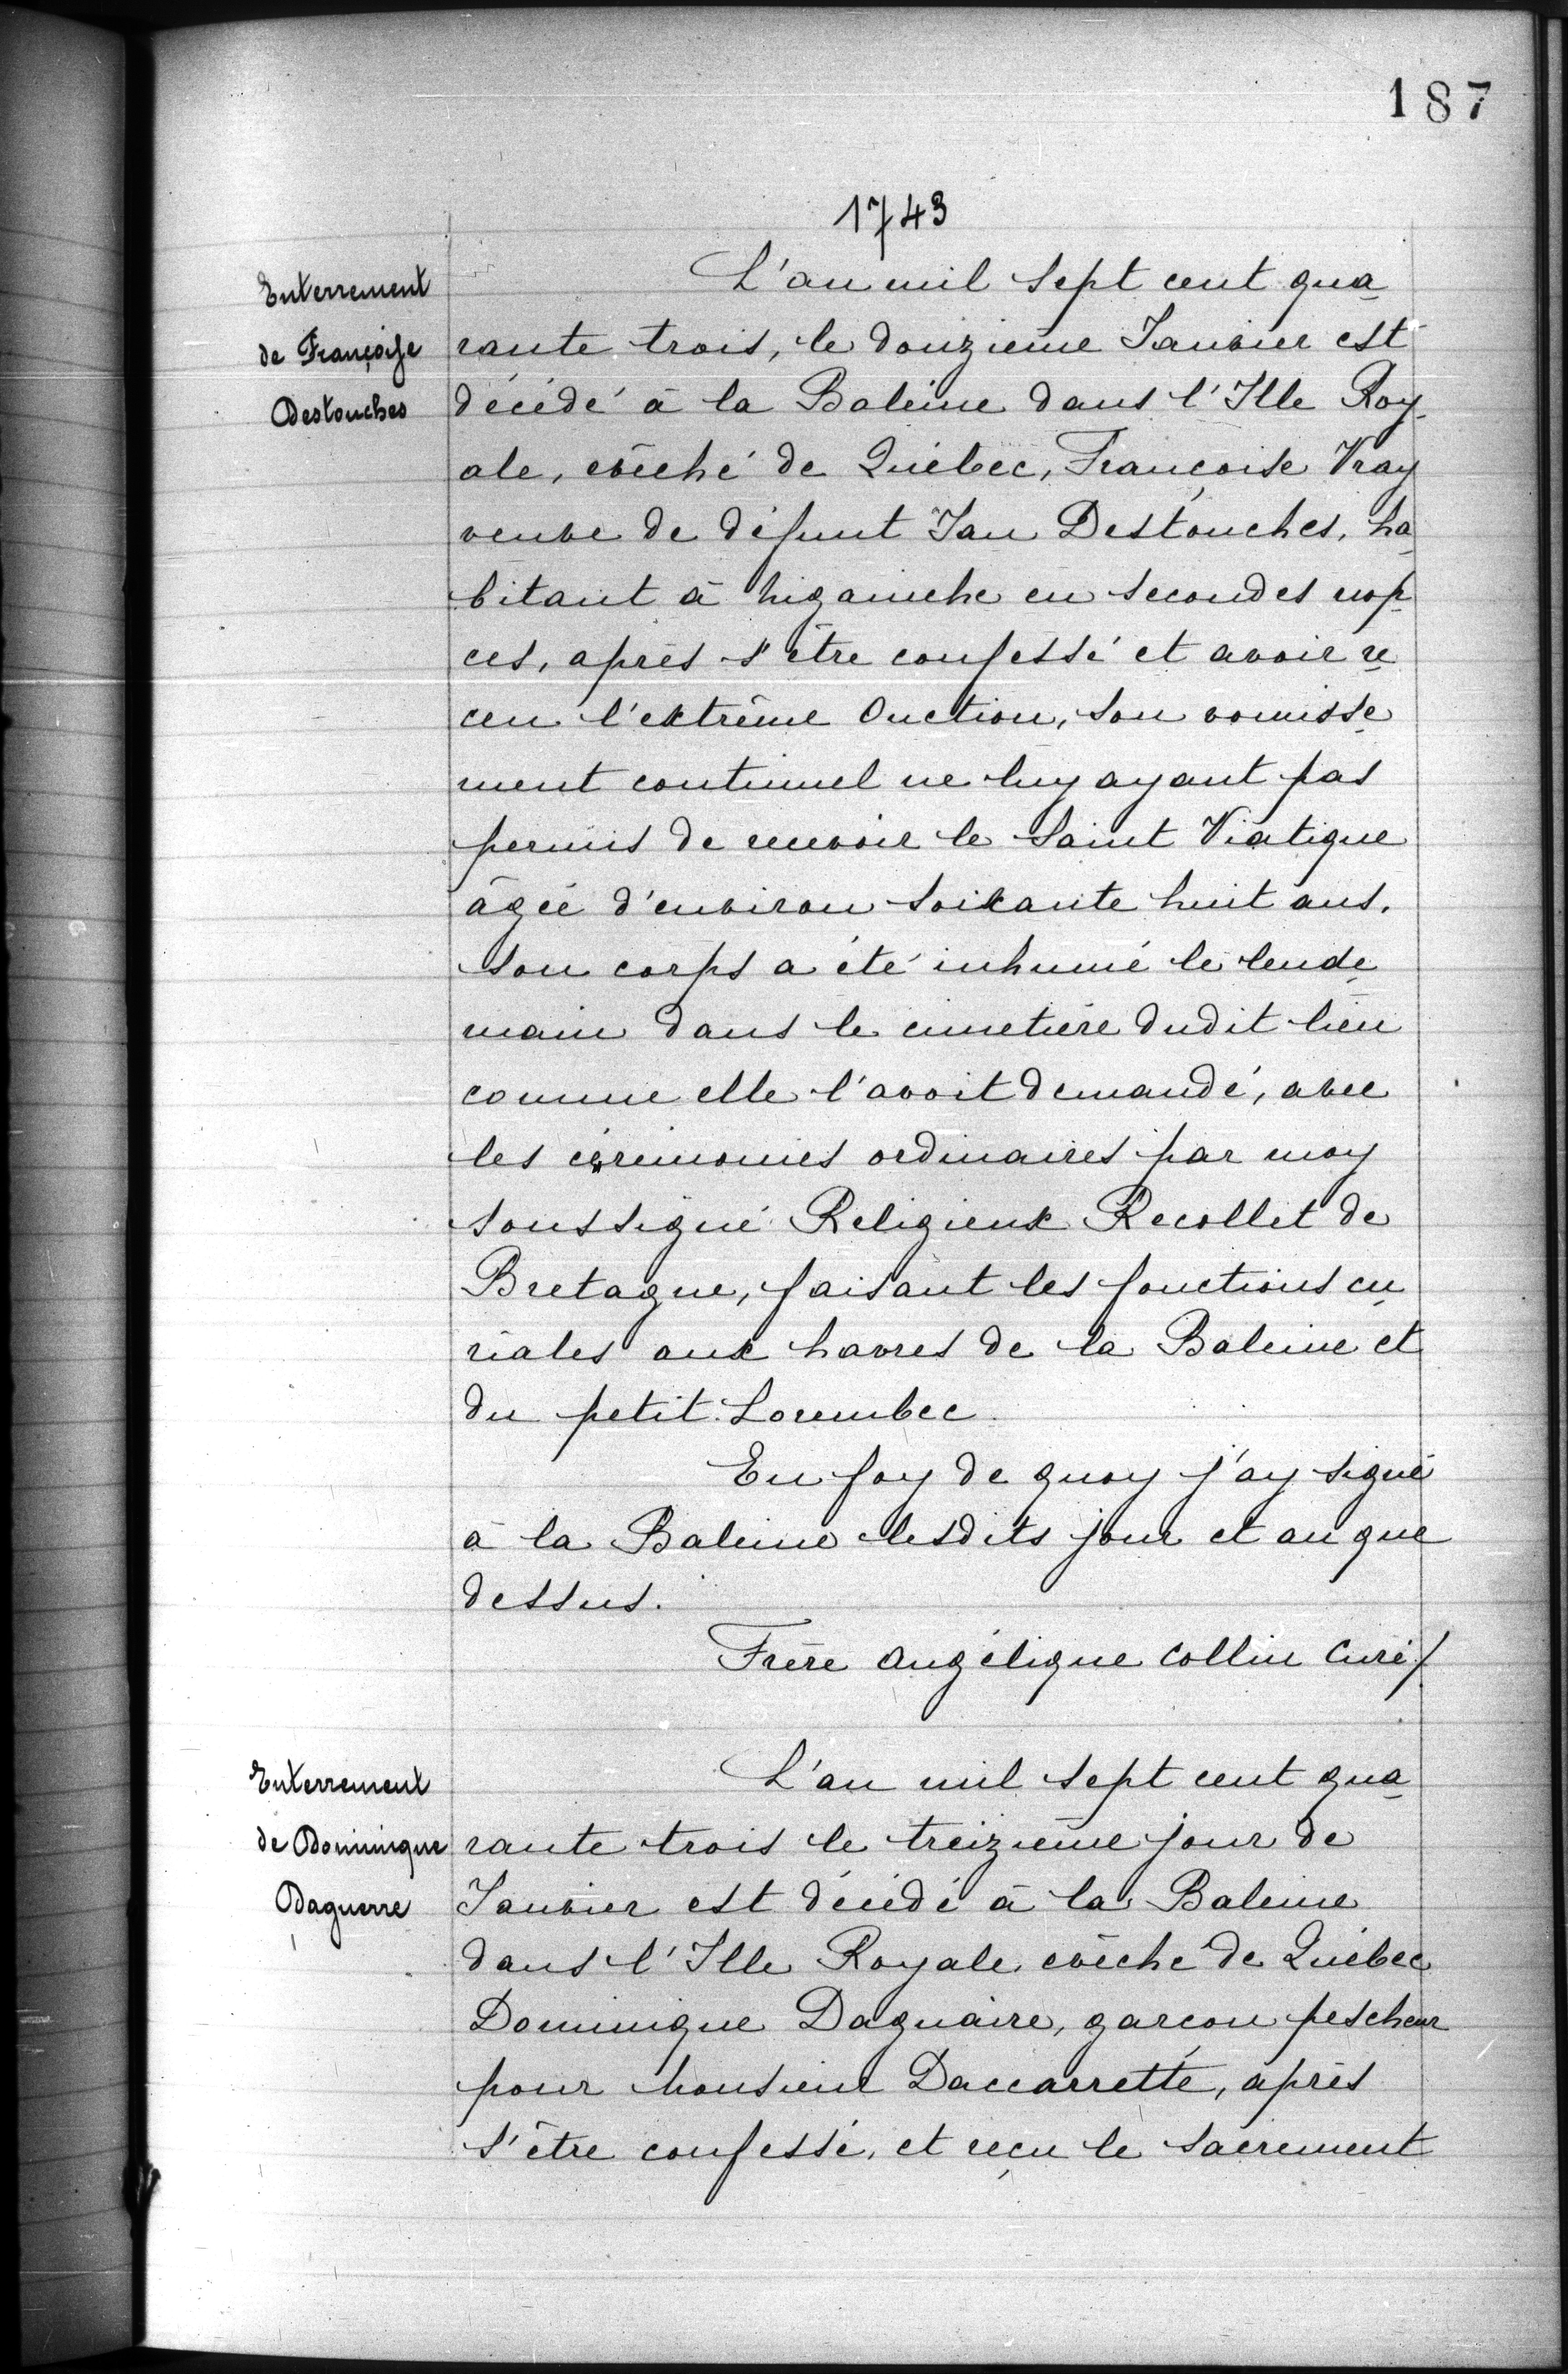 187
1743
Enterrement
de Françoise
Destouches
L'an mil sept cent qua
rante trois, le douzième Janvier est
décédé à la Baleine dans l'Ille Roy
ale, evêché de Québec, Françoise Vray
veuve de défunt Jan Destouches, ha
bitant à niganiche en secondes nop
ces, après s'être confessé et avoir re
ceu l'extrême Onction, son vomisse
ment continuel ne luy ayant pas
permis de recevoir le Saint Viatique
âgée d'environ soixante huit ans,
son corps a été inhumé le lende
main dans le cimetière dudit lieu
comme elle l'avoit demandé, avec
les cérémonies ordinaires par moy
soussigné Religieux Recollet de
Bretagne, faisant les fonctions cu
riales aux havres de la Baleine et
du petit Lorembec.
En foy de quoy j'ay signé
à la Baleine lesdits jour et an que
dessus.
Frère Angélique Collin Curé/.
Enterrement
de Dominique
Daguerre
L'an mil sept cent qua
rante trois le treizième jour de
Janvier est décédé à la Baleine
dans l'Ille Royale, evêché de Québec
Dominique Daguaire, garçon pescheur
pour monsieur Daccarrette, après
s'être confessé, et reçu le sacrement